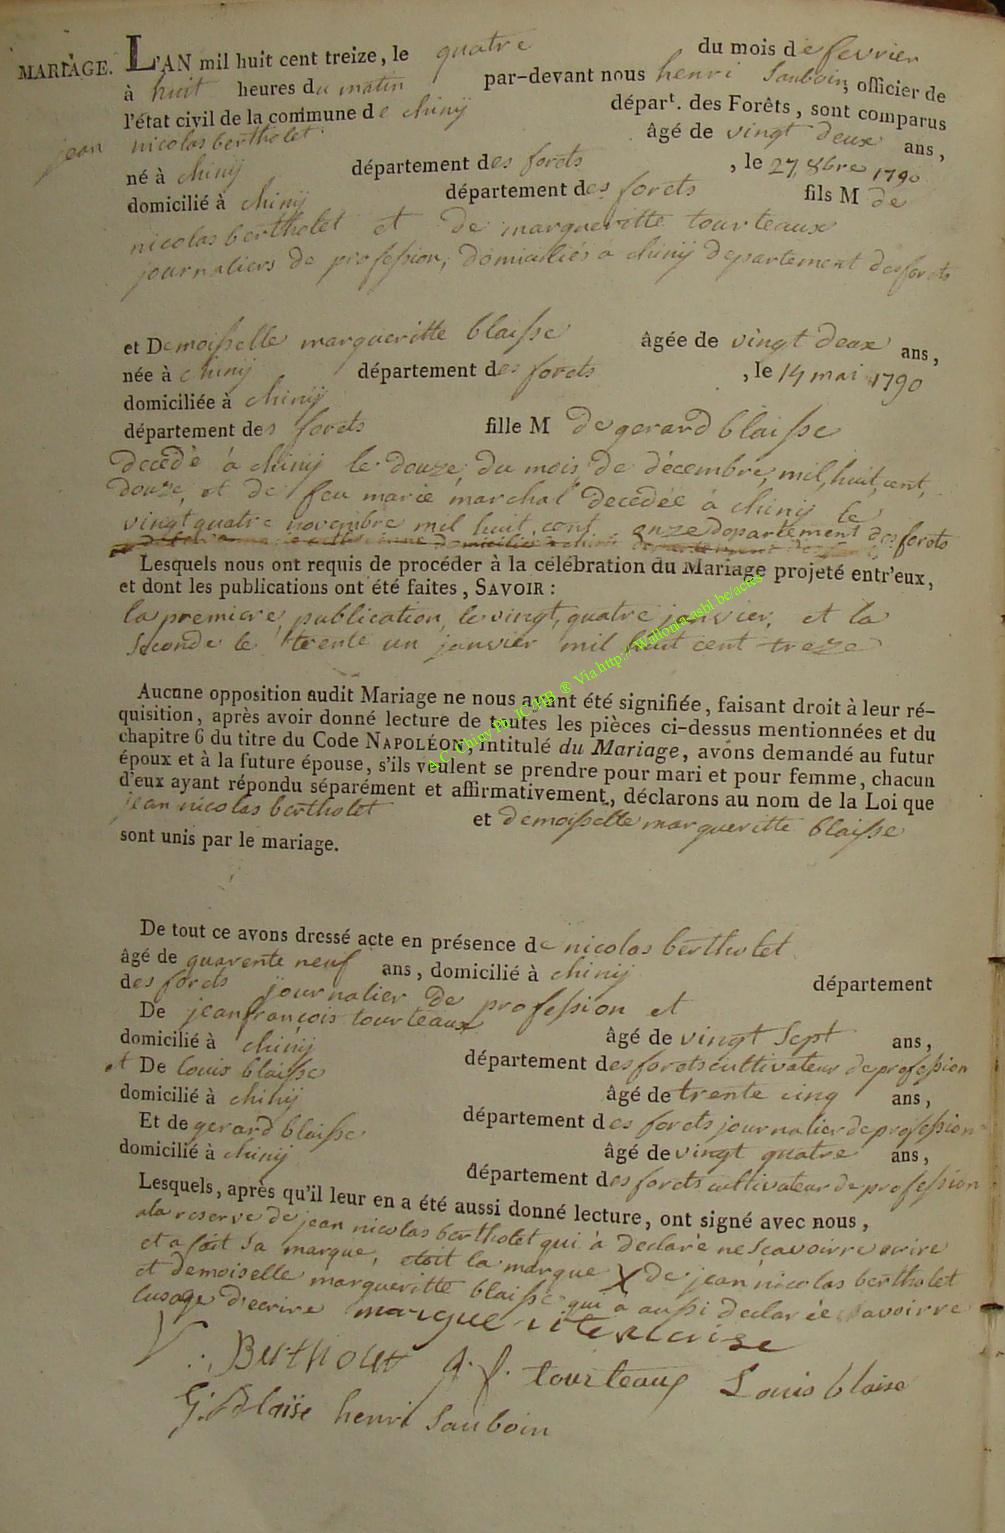 MARIAGE. L'AN mil huit cent treize, le quatre du mois de fevrier
à huit heures du matin par-devant nous henri Sauboin, officier de
l'état civil de la commune de chinij départ. des Forêts, sont comparus
jean nicolas bertholet âgé de vingt deux ans,
né à chinij département des forets, le 27 8bre 1790
domicilié à chinij département des forets fils M de
nicolas bertholet et de margueritte tourteaux
journaliers de profession, domiciliés a chinij departement des forets
et Demoisselle margueritte blaisse âgée de vingt deux ans,
née à chinij département des forets, le 14 mai 1790
domiciliée à chinij
département des forets fille M de gerard blaisse
decedè a chinij le douze du mois de décembre, mil, huit, cent,
douze, et de feu marie marchal decedée à chinij le
vingt quatre novembre mil huit cent onze departement des forets
Lesquels nous ont requis de procéder à la célébration du Mariage projeté entr'eux,
et dont les publications ont été faites, SAVOIR :
la premiere publication, le vingt, quatre janvier, et la
seconde le trente un janvier mil huit cent treze
Aucune opposition audit Mariage ne nous ayant été signifiée, faisant droit à leur ré-
quisition, après avoir donné lecture de toutes les pièces ci-dessus mentionnées et du
chapitre 6 du titre du Code NAPOLÉON, intitulé du Mariage, avons demandé au futur
époux et à la future épouse, s'ils veulent se prendre pour mari et pour femme, chacun
d'eux ayant répondu séparément et affirmativement, déclarons au nom de la Loi que
jean nicolas bertholet et demoisselle margueritte blaisse
sont unis par le mariage.
De tout ce avons dressé acte en présence de nicolas bertholet
âgé de quarente neuf ans, domicilié à chinij département
des forets journalier de profession et
De jean françois tourteaux âgé de vingt Sept ans,
domicilié à chinij département des forets cultivateur de profession
et De louis blaisse âgé de trente cinq ans,
domicilié à chinij département des forets journalier de profession
Et de gerard blaisse âgé de vingt quatre ans,
domicilié à chinij département des forets cultivateur de profession
Lesquels, après qu'il leur en a été aussi donné lecture, ont signé avec nous,
ala reserve de jean nicolas bertholet qui à declarè ne sçavoirre ecrire
et a fait sa marque, etoit la marque X de jean nicolas bertholet
et demoiselle margueritte blaisse qui a aussi declarée savoirre
lusage d'ecrire
Bertholet j. f. tourteaux Louis blaise
G. Blaise henri Sauboin
A.C. Chiny Ph. JCMB ® Via http://Wallonia-asbl.be/actes